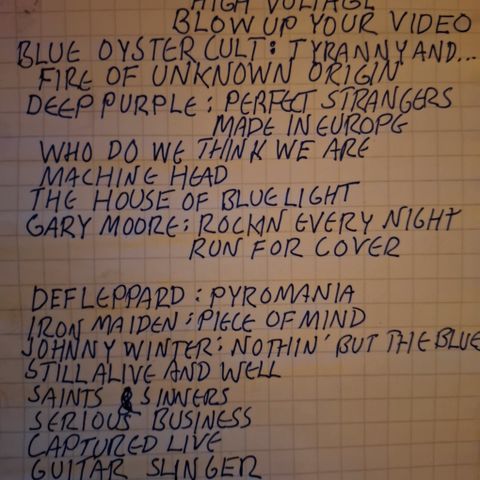 HIGH VOLTAGE
BLOW UP YOUR VIDEO
BLUE OYSTER CULT: TYRANNY AND...
FIRE OF UNKNOWN ORIGIN
DEEP PURPLE: PERFECT STRANGERS
MADE IN EUROPE
WHO DO WE THINK WE ARE
MACHINE HEAD
THE HOUSE OF BLUE LIGHT
GARY MOORE: ROCKIN EVERY NIGHT
RUN FOR COVER
DEF LEPPARD: PYROMANIA
IRON MAIDEN: PIECE OF MIND
JOHNNY WINTER: NOTHIN' BUT THE BLUE
STILL ALIVE AND WELL
SAINTS & SINNERS
SERIOUS BUSINESS
CAPTURED LIVE
GUITAR SLINGER